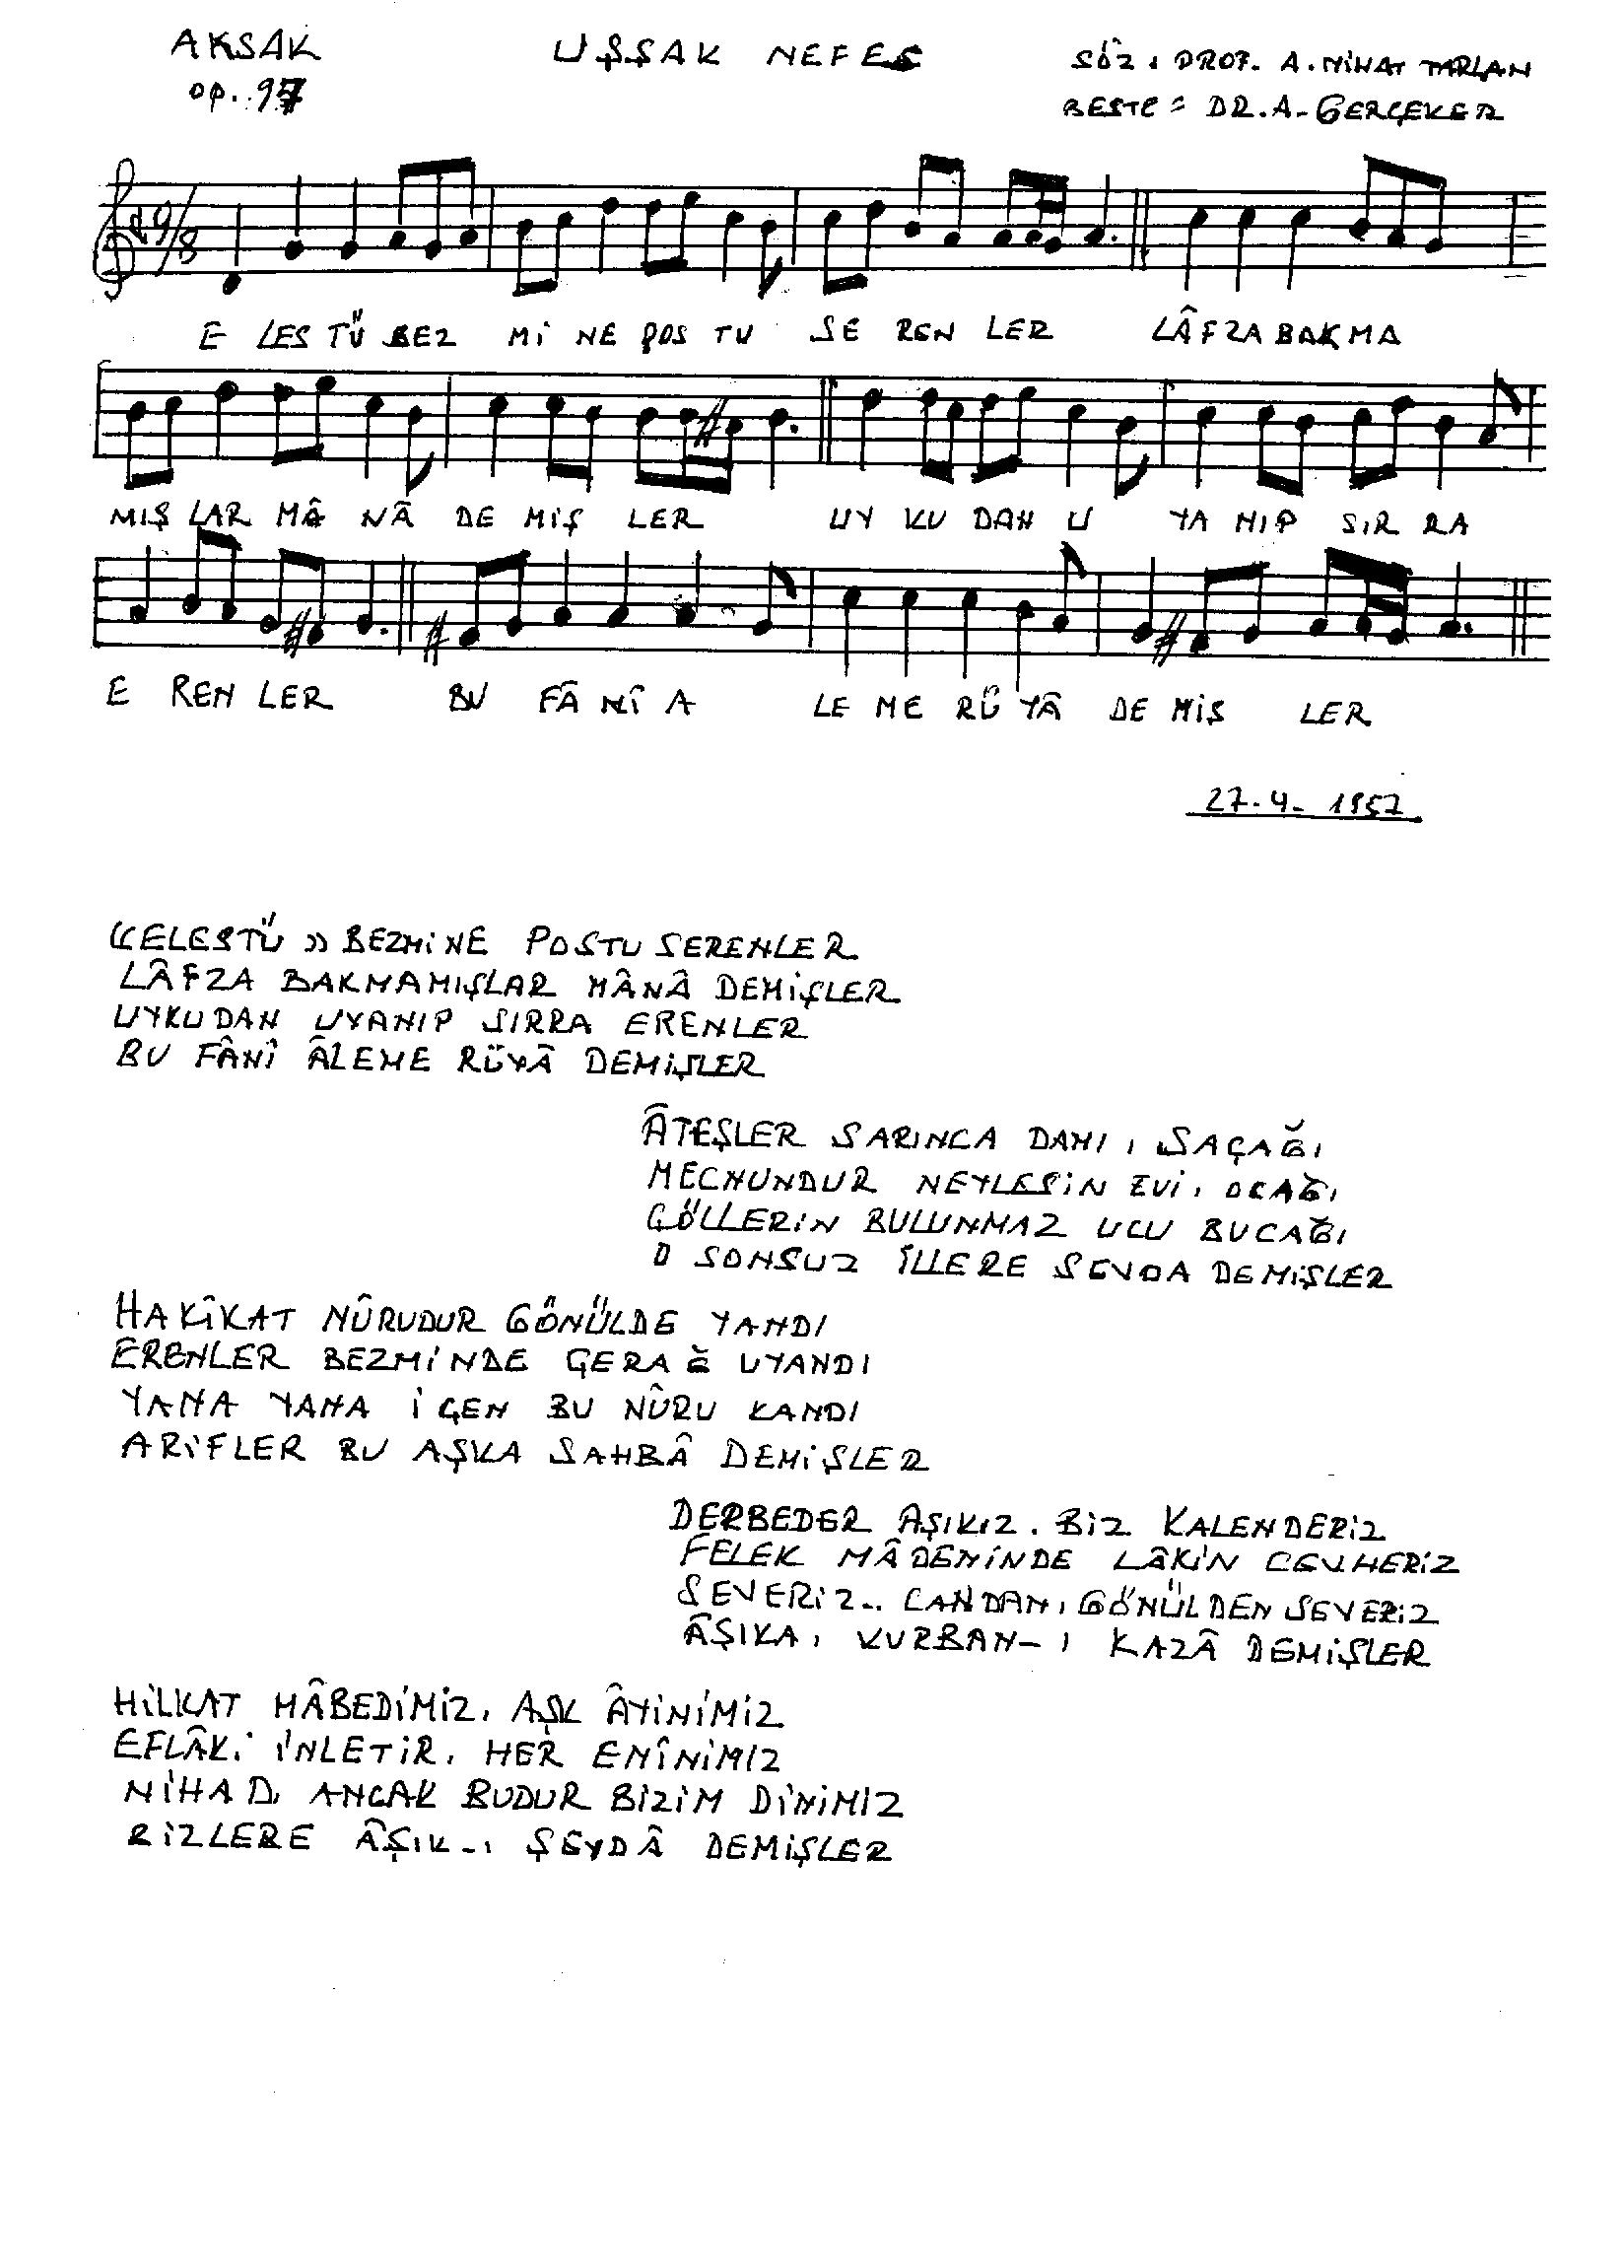 AKSAK
op. 97
UŞŞAK NEFES
SÖZ : PROF. A. NİHAT TARLAN
BESTE = DR. A. GERÇEKER
9/8
E LES TÜ BEZ Mİ NE POS TU SE REN LER LÂFZA BAKMA
MIŞ LAR MÂ NÂ DE MİŞ LER UY KU DAN U YA NIP SIR RA
E REN LER BU FÂ NÎ A LE ME RÜ YÂ DE MİŞ LER
27-4-1957
«ELESTÜ» BEZMİNE POSTU SERENLER
LÂFZA BAKMAMIŞLAR MÂNÂ DEMİŞLER
UYKUDAN UYANIP SIRRA ERENLER
BU FÂNÎ ÂLEME RÜYÂ DEMİŞLER
ÂTEŞLER SARINCA DAMI, SAÇAĞI
MECNUNDUR NEYLESİN EVİ, OCAĞI
ÇÖLLERİN BULUNMAZ UCU BUCAĞI
O SONSUZ İLLERE SEVDA DEMİŞLER
HAKÎKAT NÛRUDUR GÖNÜLDE YANDI
ERENLER BEZMİNDE ÇERAĞ UYANDI
YANA YANA İÇEN BU NÛRU KANDI
ARİFLER BU AŞKA SAHBÂ DEMİŞLER
DERBEDER AŞIKIZ. BİZ KALENDERİZ
FELEK MÂDENİNDE LÂKİN CEVHERİZ
SEVERİZ.. CANDAN, GÖNÜLDEN SEVERİZ
ÂŞIKA, KURBAN-I KAZÂ DEMİŞLER
HİLKAT MÂBEDİMİZ, AŞK ÂYİNİMİZ
EFLÂKİ İNLETİR, HER ENÎNİMİZ
NİHAD, ANCAK BUDUR BİZİM DİNİMİZ
BİZLERE ÂŞIK-I ŞEYDÂ DEMİŞLER